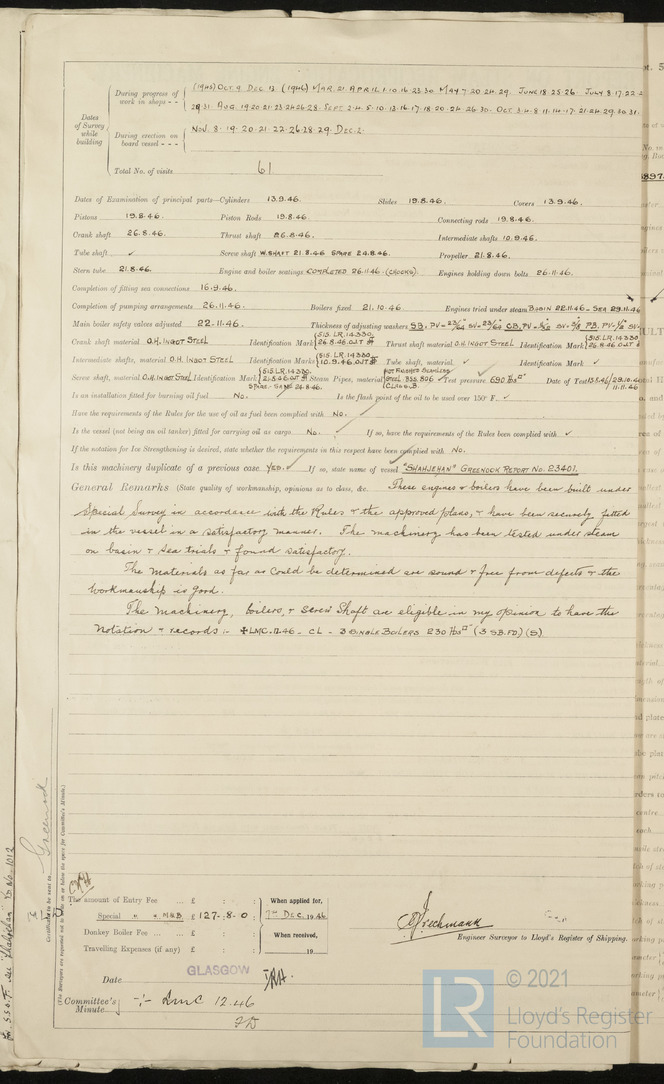 During progress of work in shops - -
(1945) OCT. 9. DEC. 13. (1946) MAR. 21. APRIL 1. 10. 16. 23. 30. MAY 7. 20. 24. 29. JUNE 18. 25. 26. JULY 8. 17. 22.
29. 31. AUG. 19. 20. 21. 23. 24. 26. 28. SEPT. 2. 4. 5. 10. 13. 16. 17. 18. 20. 24. 26. 30. OCT. 3. 4. 8. 11. 14. 17. 21. 24. 29. 30. 31.
Dates of Survey while building
During erection on board vessel - - -
NOV. 8. 19. 20. 21. 22. 26. 28. 29. DEC. 2.
Total No. of visits 61
Dates of Examination of principal parts—Cylinders 13.9.46. Slides 19.8.46. Covers 13.9.46.
Pistons 19.8.46. Piston Rods 19.8.46. Connecting rods 19.8.46.
Crank shaft 26.8.46. Thrust shaft 26.8.46. Intermediate shafts 10.9.46.
Tube shaft ✓ Screw shaft W.SHAFT 21.8.46 SPARE 24.8.46. Propeller 21.8.46.
Stern tube 21.8.46. Engine and boiler seatings COMPLETED 26.11.46 (CHOCKS) Engines holding down bolts 26.11.46.
Completion of fitting sea connections 16.9.46.
Completion of pumping arrangements 26.11.46. Boilers fixed 21.10.46. Engines tried under steam BASIN 22.11.46 - SEA 29.11.46
Main boiler safety valves adjusted 22.11.46. Thickness of adjusting washers SB. PV= SV= CB. PV= SV= PB. PV= SV=
Crank shaft material O.H. INGOT STEEL Identification Mark 515. LR. 14330. 26.8.46. OJT Thrust shaft material O.H INGOT STEEL Identification Mark 515. LR. 14330 26.8.46. OJT
Intermediate shafts, material O.H. INGOT STEEL Identification Marks 515. LR. 14330. 10.9.46. OJT Tube shaft, material ✓ Identification Mark ✓
Screw shaft, material O.H. INGOT STEEL Identification Mark 515. LR. 14330. 21.8.46. OJT SPARE - SAME 24.8.46. Steam Pipes, material HOT FINISHED SEAMLESS STEEL BSS. 806 CLASS B. Test pressure 690 lbs Date of Test 13.9.46/29.10.46 11.11.46
Is an installation fitted for burning oil fuel No. Is the flash point of the oil to be used over 150° F. ✓
Have the requirements of the Rules for the use of oil as fuel been complied with No.
Is the vessel (not being an oil tanker) fitted for carrying oil as cargo No. If so, have the requirements of the Rules been complied with ✓
If the notation for Ice Strengthening is desired, state whether the requirements in this respect have been complied with No.
Is this machinery duplicate of a previous case Yes. If so, state name of vessel "SHAHJEHAN" GREENOCK REPORT No. 23401.
General Remarks (State quality of workmanship, opinions as to class, &c. These engines & boilers have been built under
Special Survey in accordance with the Rules & the approved plans, & have been securely fitted
in the vessel in a satisfactory manner. The machinery has been tested under steam
on basin & sea trials & found satisfactory.
The materials as far as could be determined are sound & free from defects & the
workmanship is good.
The machinery, boilers, & screw shaft are eligible in my opinion to have the
notation & records :- ✠LMC. 12.46 - CL - 3 SINGLE BOILERS 230 lbs□" (3 SB. FD) (S)
Greenock
Certificate to be sent to
(The Surveyors are requested not to write on or below the space for Committee's Minute.)
The amount of Entry Fee ... £ : :
Special " " M&B. £ 127 - 8 - 0 :
Donkey Boiler Fee ... ... £ : :
Travelling Expenses (if any) £ : :
When applied for,
7th DEC. 1946
When received,
19
Engineer Surveyor to Lloyd's Register of Shipping.
Date GLASGOW
Committee's Minute LMC 12.46
© 2021
LR Lloyd's Register
Foundation